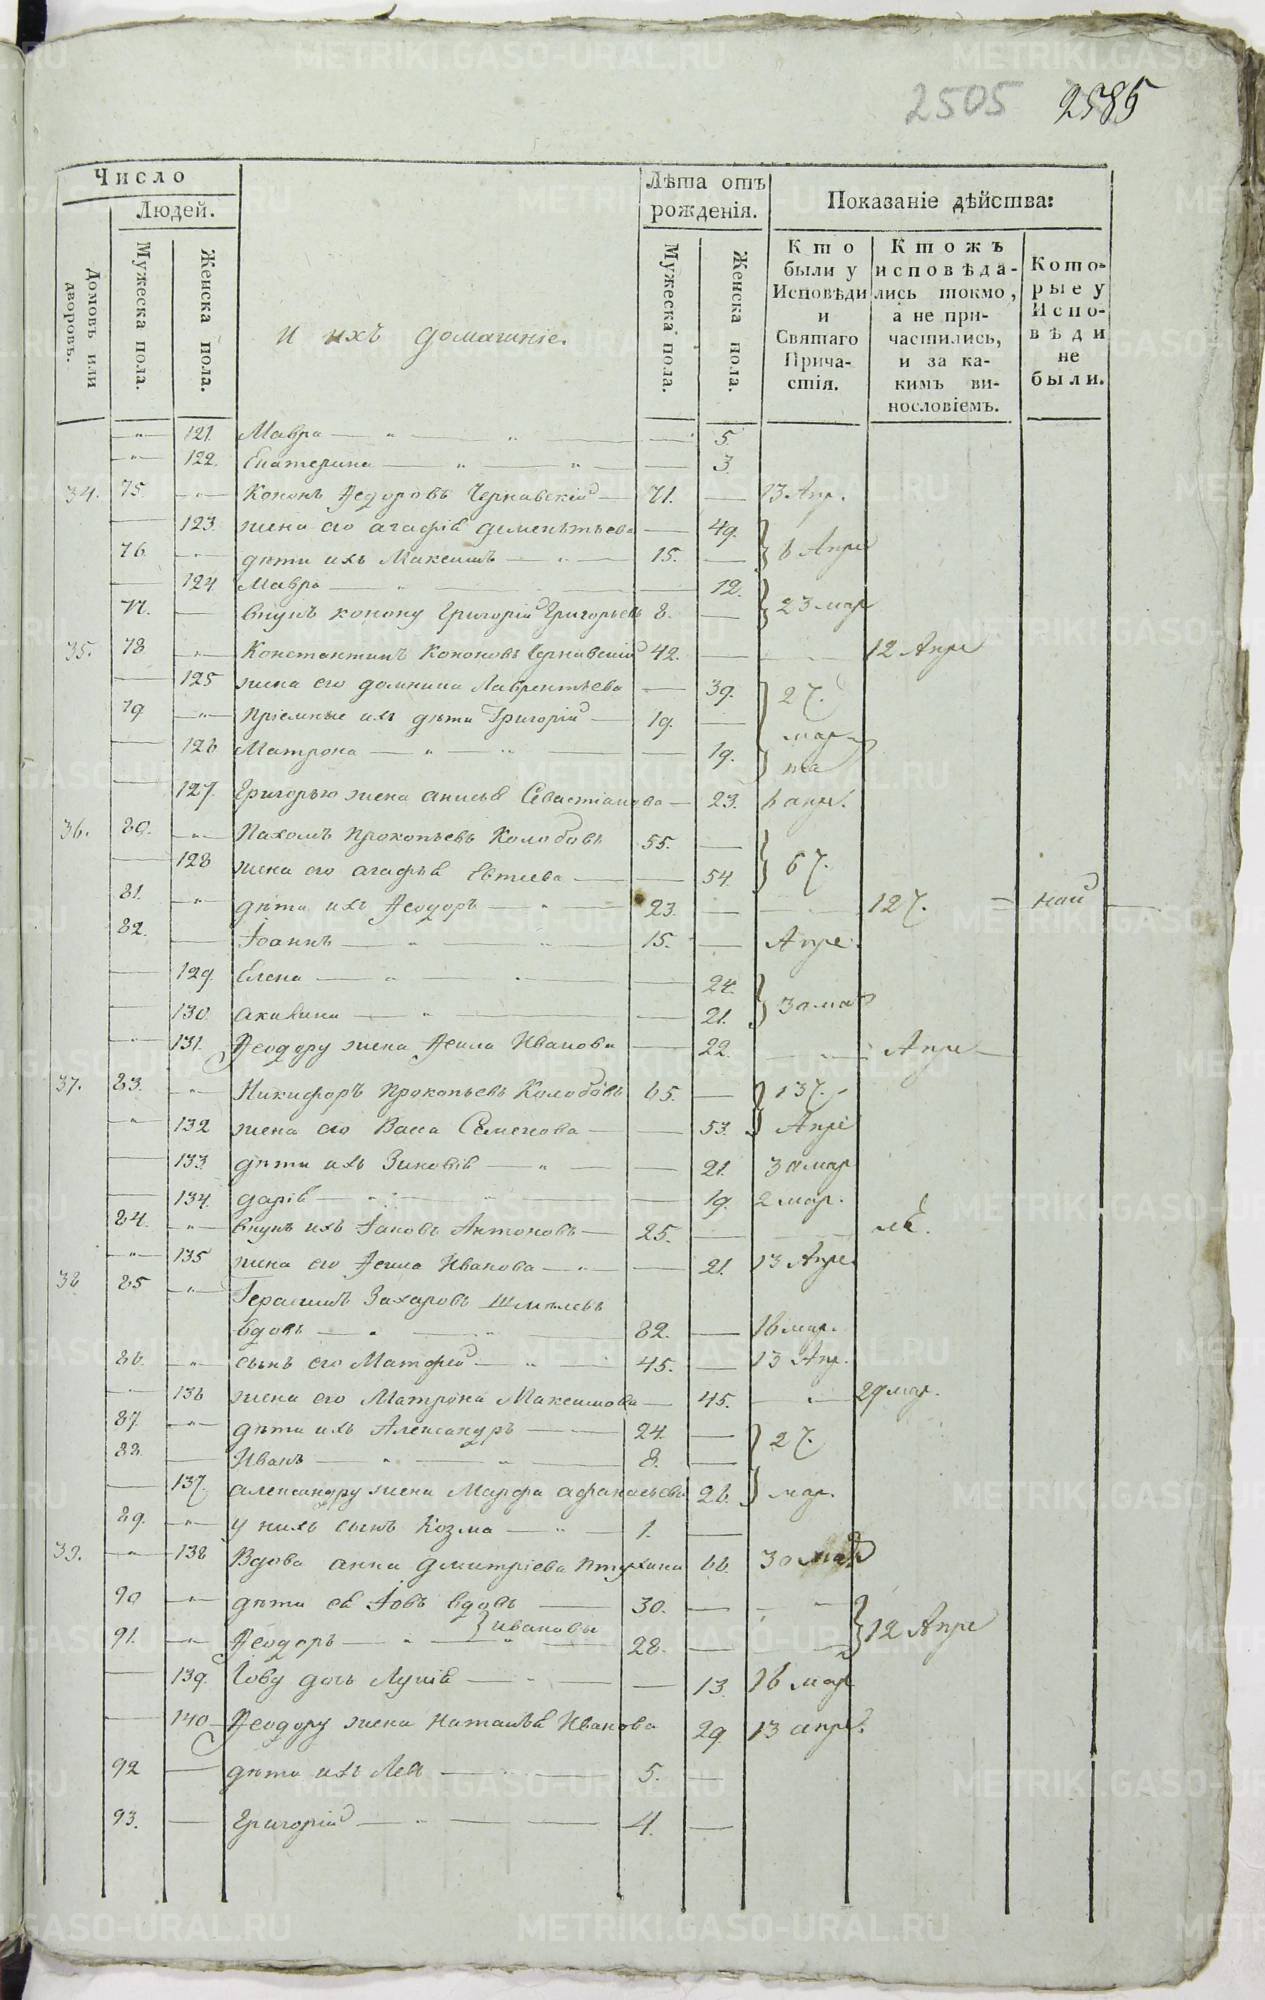 2505 2585
Число
Людей.
Домовъ или дворовъ.
Мужеска пола.
Женска пола.
и ихъ домашніе.
Лѣта отъ рожденія.
Мужеска пола.
Женска пола.
Показаніе дѣйства:
Кто были у Исповѣди и Святаго Причастія.
Ктожъ исповѣдались токмо, а не причастились, и за какимъ винословіемъ.
Которые у Исповѣди не были.
121. Мавра 5.
122. Екатерина 3
34. 75. Кононъ Ѳедоровъ Чернавскій 71. 13 Апр.
123. жена его агафія дементьева 49.
76. дѣти ихъ Максимъ 15. 6 Апре
124 Мавра 12.
77. внукъ конону Григорій Григорьевъ 8. 23 мар
35. 78 Константинъ Кононовъ Чернавскій 42. 12 Апре
125 жена его домнина Лаврентьева 39. 27.
79 Пріемные ихъ дѣти Григорій 19. мар
126 Матрона 19. та
127. Григорью жена анисья Севастіанова 23. 6 апре.
36. 80. Пахомъ Прокопьевъ Колобовъ 55.
128 жена его агафья Евтиева 54. 67.
81. дѣти ихъ Ѳеодоръ 23. 127.
82. Іоаннъ 15. Апре.
129. Елена 24.
130. акилина 21. 30 мар
131. Ѳеодору жена Ѳекла Иванова 22. Апре
37. 83. Никифоръ Прокопьевъ Колобовъ 65. 137.
132 жена его Васса Семенова 53. Апре
133 дѣти ихъ Зиновія 21. 30 мар
134. дарія 19. 2 мар.
84. внукъ ихъ Іаковъ Антоновъ 25.
135 жена его Ѳекла Иванова 21. 13 Апре
38 85 Герасимъ Захаровъ Шмелевъ
вдовъ 82. 16 мар.
86. сынъ его Матфей 45. 13 Апр.
136 жена его Матрона Максимова 45. 29 мар.
87. дѣти ихъ Александръ 24. 27.
88. Иванъ 8.
137. александру жена Марфа афанасьева 26. мар.
89. у нихъ сынъ Козма 1.
39. 138 Вдова анна дмитріева Птухина 66. 30 мар
90 дѣти ея Іовъ вдовъ 30.
ивановы
91. Ѳеодоръ 28. 12 Апре
139. Іову дочь Лукія 13. 16 мар
140 Ѳеодору жена Наталья Иванова 29 13 апре.
92 дѣти ихъ Лев 5.
93. Григорій 4.
METRIKI.GASO-URAL.RU